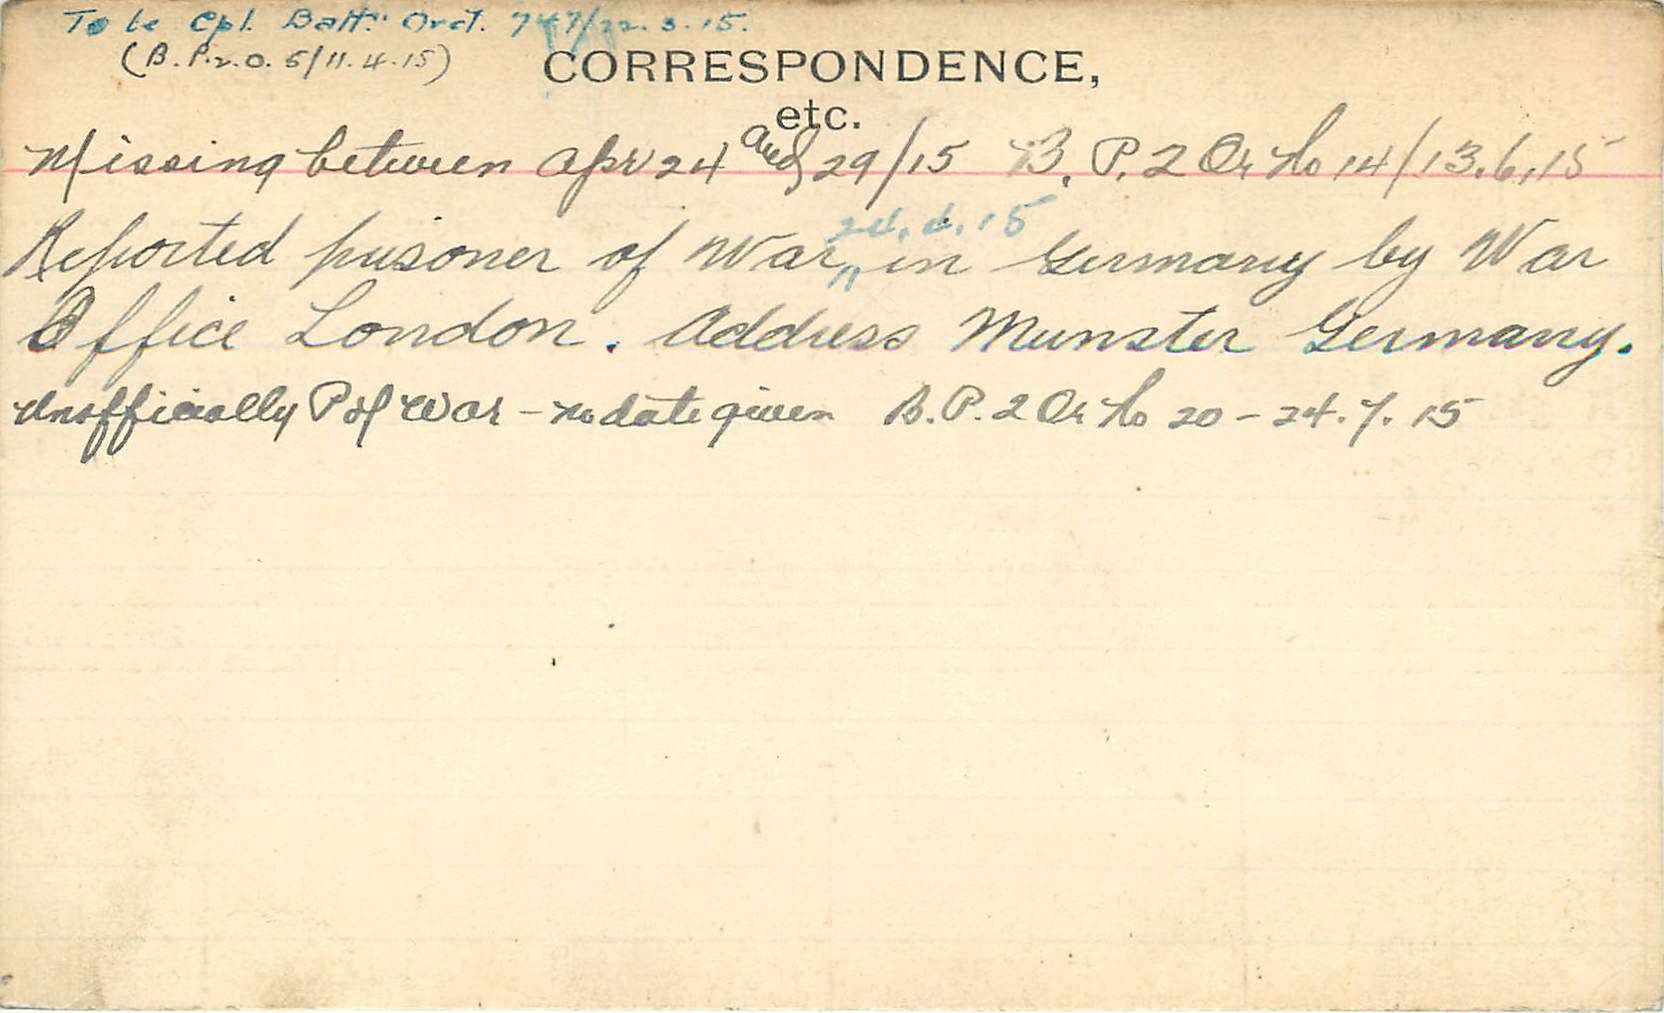 To be Cpl. Battn. Ord. 747/22.3.15.
(B.P.2.O. 5/11.4.15)
CORRESPONDENCE,
etc.
Missing between Apr 24 and 29/15 B. P. 2 Or No 14/13.6.15
24.4.15
Reported prisoner of War in Germany by War
Office London. Address Munster Germany.
Unofficially P of War - no date given B.P. 2 Or No 20 - 24.7.15